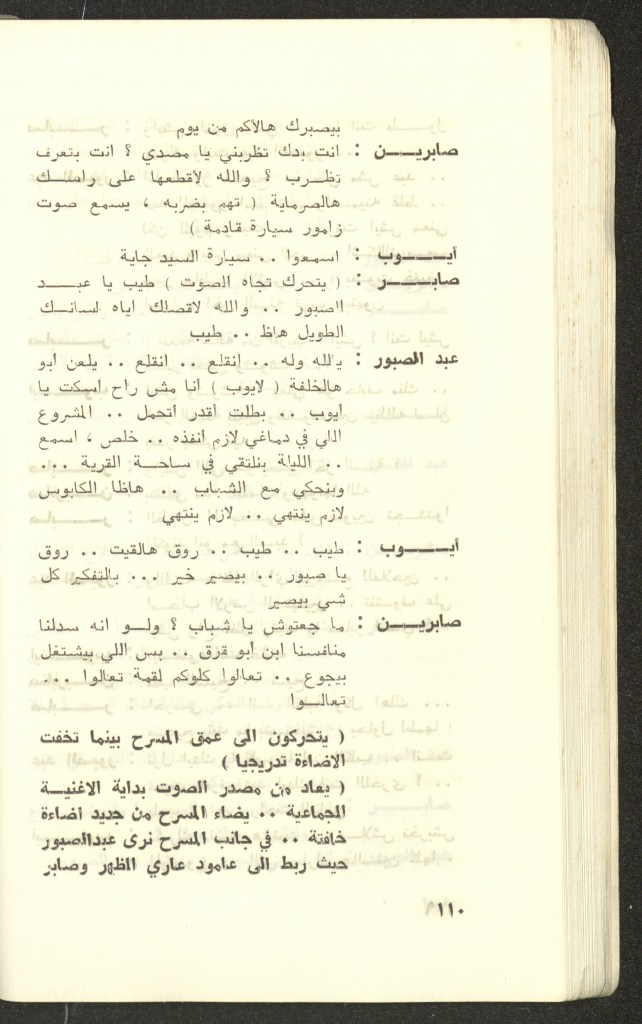 بيصبرك هالأكم من يوم
صابريــن : انت بدك تظربني يا مصدي ؟ انت بتعرف
تظــرب ؟ والله لاقطعها على راســك
هالصرماية ( تهم بضربه ، يسمع صوت
زامور سيارة قادمة )
أيــــوب : اسمعوا . . سيارة السيد جاية
صابــــر : ( يتحرك تجاه الصوت ) طيب يا عبــــد
الصبور . . والله لاقصلك اياه لسانــك
الطويل هاظ . . طيب
عبد الصبور : يالله وله . . انقلع . . انقلع . . يلعن أبو
هالخلفة ( لايوب ) أنا مش راح اسكت يا
أيوب . . بطلت أقدر أتحمل . . المشروع
اللي في دماغي لازم أنفذه . . خلص ، اسمع
. . الليلة بنلتقي في ساحــة القرية ...
وبنحكي مع الشباب . . هاظا الكابوس
لازم ينتهي . . لازم ينتهي
أيــــوب : طيب . . طيب . . روق هالقيت . . روق
يا صبور . . بيصير خير ... بالتفكير كل
شي بيصير
صابريــن : ما جعتوش يا شباب ؟ ولــو انه سدلنا
منافسنا ابن أبو قرق . . بس اللي بيشتغل
بيجوع . . تعالوا كلوكم لقمة تعالوا ...
تعالــوا
( يتحركون الى عمق المسرح بينما تخفت
الاضاءة تدريجيا )
( يعاد من مصدر الصوت بداية الاغنيــة
الجماعية . . يضاء المسرح من جديد اضاءة
خافتة . . في جانب المسرح نرى عبدالصبور
حيث ربط الى عامود عاري الظهر وصابر
١١٠